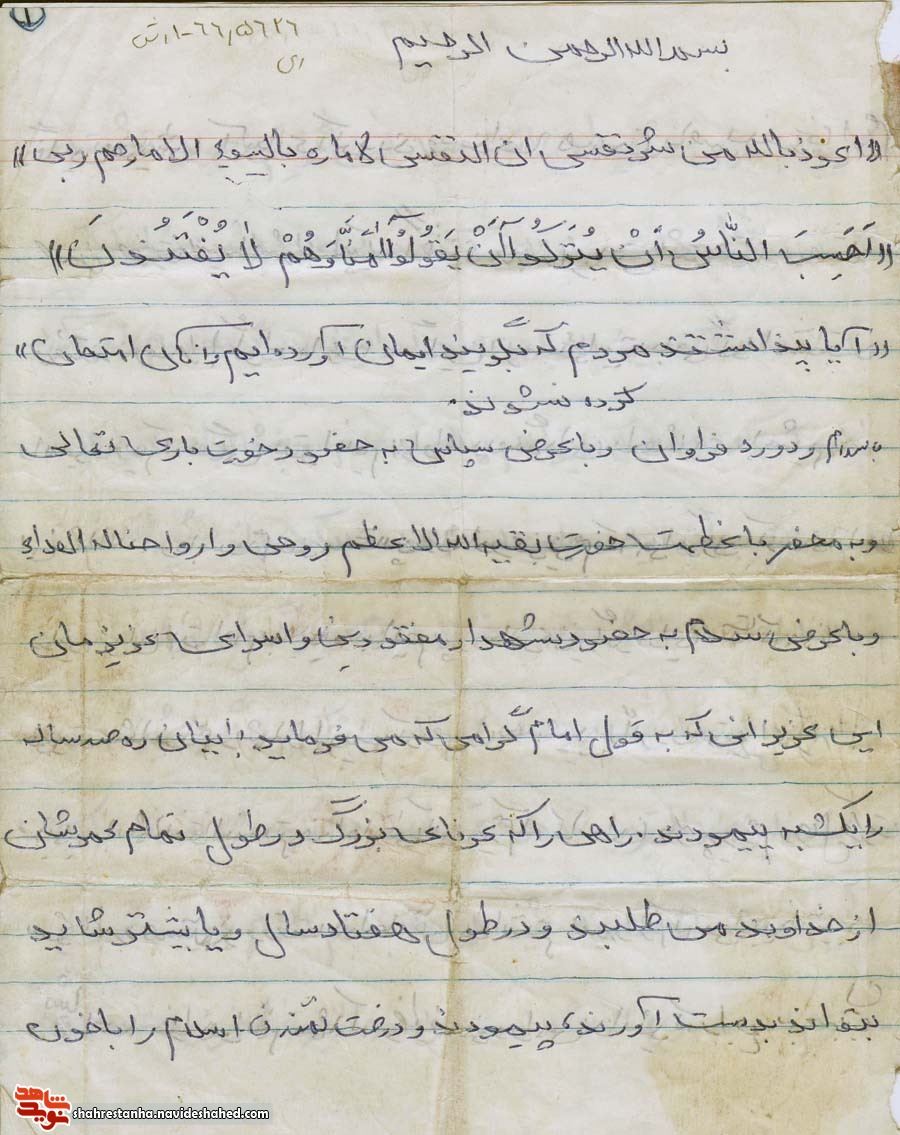 ۱
۶۶/۵۶۲۶-۱رش
بسم الله الرحمن الرحیم
«اعوذ بالله من شر نفسی ان النفس لاماره بالسوء الا مارحم ربی»
«اَحَسِبَ النّاسُ اَنْ یُتْرَکُوا اَنْ یَقُولُوا آمَنَّا وَهُمْ لاٰ یُفْتَنُونَ»
«آیا پنداشتند مردم که بگویند ایمان آورده‌ایم و امتحان»
کرده نشوند.
با سلام و درود فراوان و با عرض سپاس به حضور حضرت باری تعالی
و به محضر باعظمت حضرت بقیه الله الاعظم روحی و ارواحنا له الفداء
و با عرض سلام به حضور شهدا و مفقودین و اسرای عزیزمان
این عزیزانی که به قول امام گرامی که می فرماید: اینان ره صد ساله
را یکشبه پیمودند. راهی را که عرفای بزرگ در طول تمام عمرشان
از خداوند می طلبند و در طول هفتاد سال و یا بیشتر شاید
بتوانند بدست آورند، پیمودند و درخت تمدن اسلام را با خون
شاهد
نوید
shahrestanha.navideshahed.com